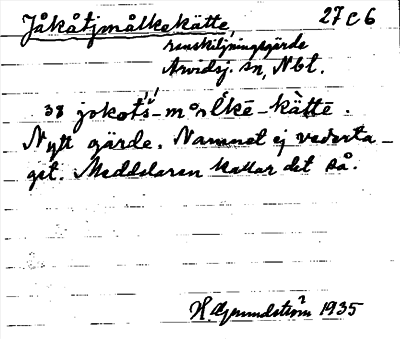 Jåkåtjmålkekåtte, 27 C 6
renskiljningsgärde
Arvidsj. sn, Nbt.
38 jokots̄-målkē-kàttē.
Nytt gärde. Namnet ej vederta-
get. Meddelaren kallar det så.
H. Grundström 1935